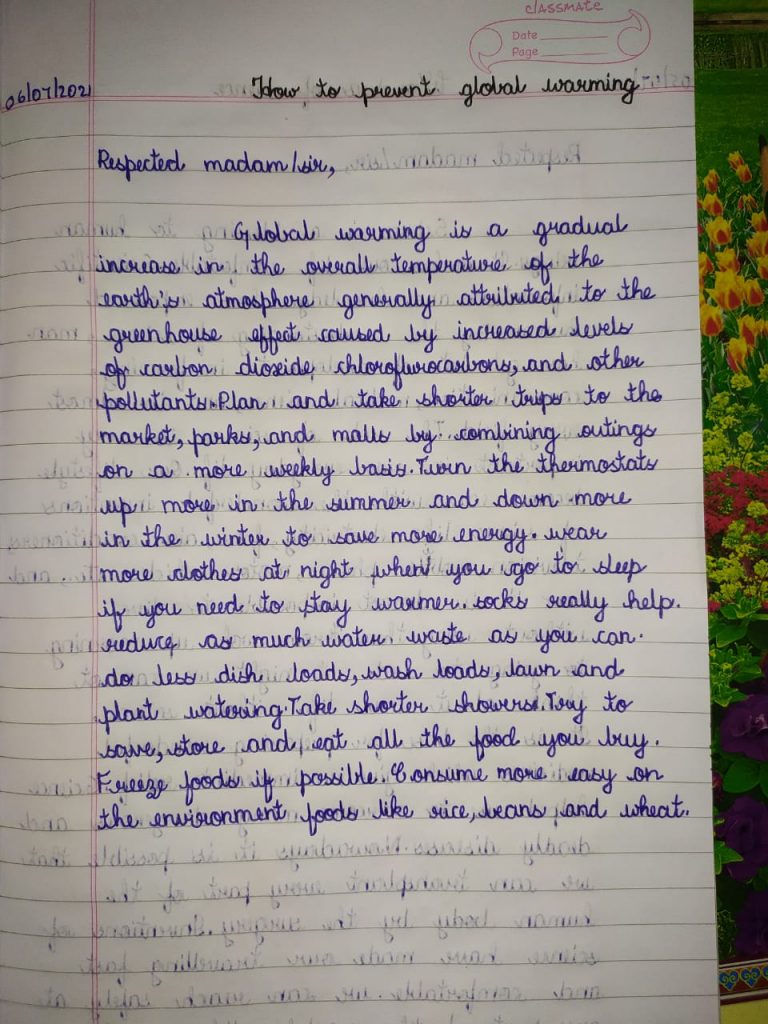 classmate
Date
Page
06/07/2021 How to prevent global warming
Respected madam/sir,
Global warming is a gradual
increase in the overall temperature of the
earth's atmosphere generally attributed to the
greenhouse effect caused by increased levels
of carbon dioxide chloroflurocarbons, and other
pollutants. Plan and take shorter trips to the
market, parks, and malls by combining outings
on a more weekly basis. Turn the thermostats
up more in the summer and down more
in the winter to save more energy. wear
more clothes at night when you go to sleep
if you need to stay warmer. socks really help.
reduce as much water waste as you can.
do less dish loads, wash loads, lawn and
plant watering. Take shorter showers. Try to
save, store and eat all the food you buy.
Freeze foods if possible. Consume more easy on
the environment foods like rice, beans and wheat.